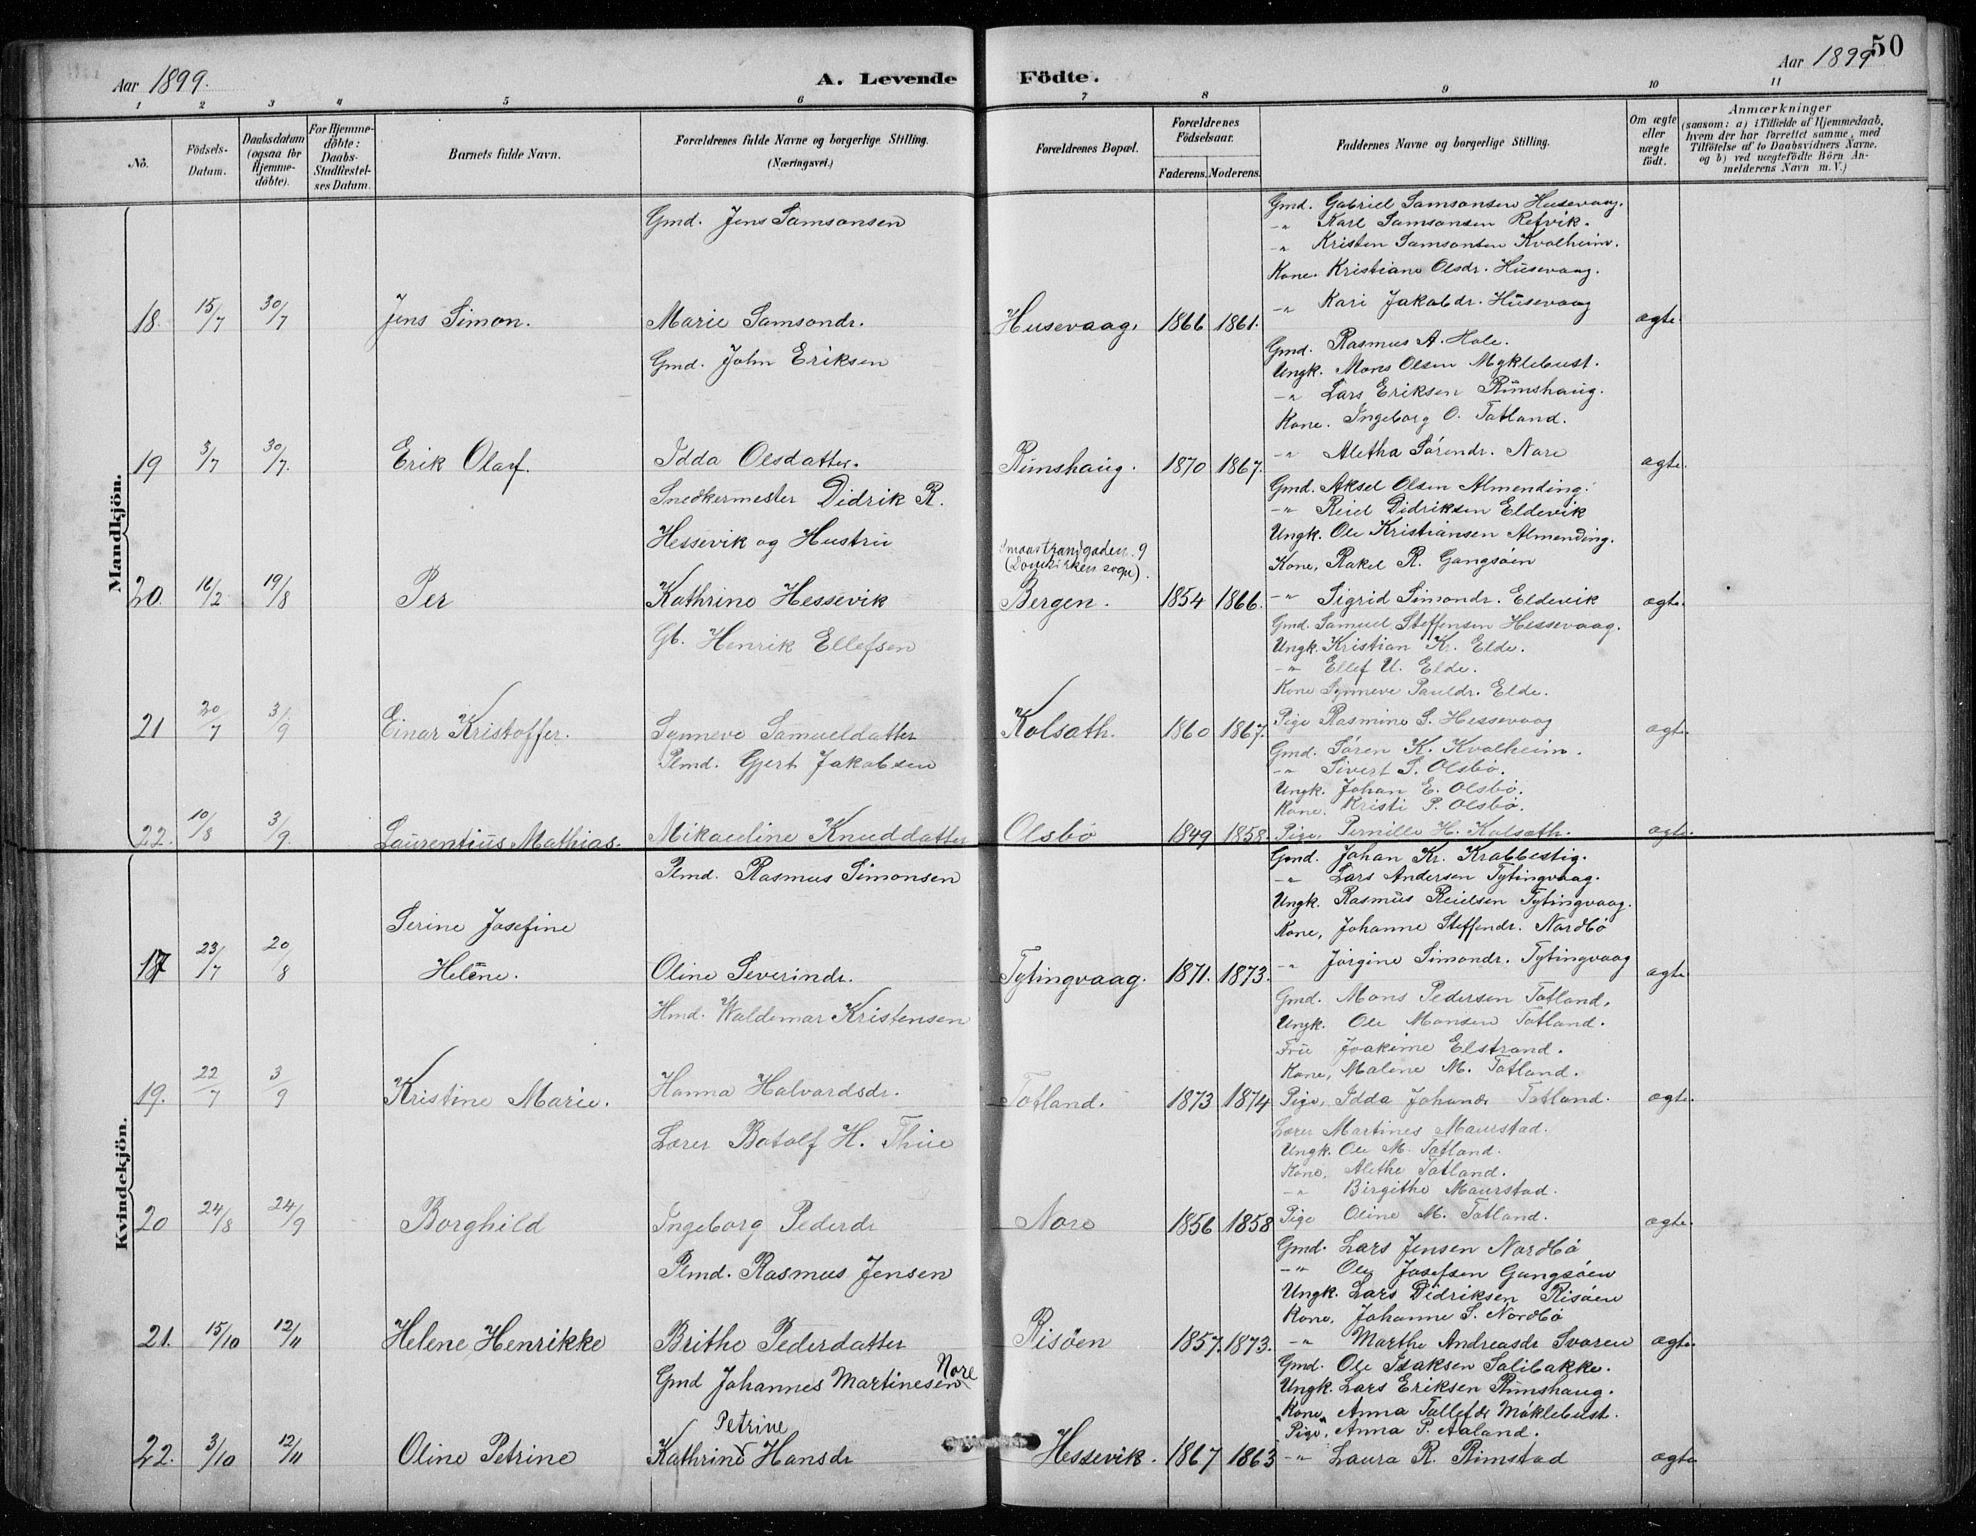 50
Aar 1899.
A. Levende Födte.
Aar 1899
1 2 3 4 5 6 7 8 9 10 11
No.
Födsels-Datum.
Daabsdatum (ogsaa for Hjemmedöbte).
For Hjemmedöbte: Daabs-Stadfæstelses Datum.
Barnets fulde Navn.
Forældrenes fulde Navne og borgerlige Stilling. (Næringsvei.)
Forældrenes Bopæl.
Forældrenes Födselsaar.
Faderens. Moderens.
Faddernes Navne og borgerlige Stilling.
Om ægte eller uægte födt.
Anmærkninger
(saasom: a) i Tilfælde af Hjemmedaab, hvem der har forrettet samme, med Tilföielse af to Daabsvidners Navne, og b) ved uægtefödte Börn Anmelderens Navn m. V.)
Mandkjön.
Gmd. Jens Samsonsen
Gmd. Gabriel Samsonsen Husevaag.
-"- Karl Samsonsen Refvik.
-"- Kristen Samsonsen Kvalheim.
Kone. Kristiane Olsdr. Husevaag.
-"- Kari Jakobdr. Husevaag
18. 15/7 30/7 Jens Simon. Marie Samsondr. Husevaag. 1866 1861. ægte.
Gmd. John Eriksen
Gmd. Rasmus A. Hole.
Ungk. Mons Olsen Myklebust.
-"- Lars Eriksen Rimshaug.
Kone. Ingeborg O. Totland.
-"- Aletha Sörendr. Nore
19 3/7 30/7. Erik Olaf. Idda Olsdatter. Rimshaug. 1870 1867. ægte.
Snedkermester Didrik R.
Hessevik og Hustru
Smaastrandgaden. 9
(Domkirken sogn).
Gmd. Aksel Olsen Almending.
-"- Reiel Didriksen Eldevik
Ungk. Ole Kristiansen Almending.
Kone, Rakel R. Gangsöen
20. 16/2 19/8 Per Kathrine Hessevik Bergen. 1854 1866. -"- Sigrid Simondr. Eldevik ægte.
Gb. Henrik Ellefsen
Gmd. Samuel Steffensen Hessevaag.
Ungk. Kristian K. Elde.
-"- Ellef U. Elde.
Kone Synneve Pauldr. Elde.
21 20/7 3/9 Einar Kristoffer. Synneve Samueldatter Kolsæth. 1860 1867. Pige Rasmine S. Hessevaag ægte.
Plmd. Gjert Jakobsen
Gmd. Sören K. Kvalheim.
-"- Sivert S. Olsbö.
Ungk. Johan E. Olsbö.
Kone. Kristi P. Olsbö.
22. 10/8 3/9. Laurentius Mathias. Mikaeline Knuddatter Olsbö 1849 1858. Pige, Pernille H. Kolsæth. ægte.
Kvindekjön.
Plmd. Rasmus Simonsen
Gmd. Johan Kr. Krabbestig.
-"- Lars Andersen Tytingvaag.
Ungk. Rasmus Reielsen Tytingvaag.
Kone, Johanne Steffendr. Nordbö
-"- Jörgine Simondr. Tytingvaag
Serine Josefine
17 23/7 20/8 Helene. Oline Severindr. Tytingvaag. 1871. 1873. ægte
Hmd. Waldemar Kristensen
Gmd. Mons Pedersen Totland.
Ungk. Ole Monsen Totland.
Fru Joakime Elstrand.
Kone, Malene M. Totland.
19. 22/7 3/9 Kristine Marie. Hanna Halvardsdr. Totland. 1873 1874 Pige, Idda Johandr Totland. ægte.
Lærer Botolf H. Thue
Lærer Martines Maurstad.
Ungk. Ole M. Totland.
Kone, Alethe Totland.
-"- Birgithe Maurstad.
20 24/8 24/9 Borghild Ingeborg Pederdr Nore 1856 1858 Pige Oline M. Totland. ægte.
Plmd. Rasmus Jensen
Gmd. Lars Jensen Nordbö
-"- Ole Josefsen Gangsöen
Ungk. Lars Didriksen Risöen
Kone, Johanne S. Nordbö
21. 15/10 12/11 Helene Henrikke Brithe Pederdatter Risöen 1857. 1873. -"- Marthe Andreasdr Svoren ægte.
Gmd Johannes Martinesen Nore
Gmd. Ole Isaksen Salibakke.
Ungk. Lars Eriksen Rimshaug.
"Kone" Anna Tollefdr Möklebust.
Pige, Anna P. Aaland.
Petrine
22. 3/10 12/11 Oline Petrine Kathrine Hansdr Hessevik. 1867 1863 -"- Laura R. Rimstad ægte